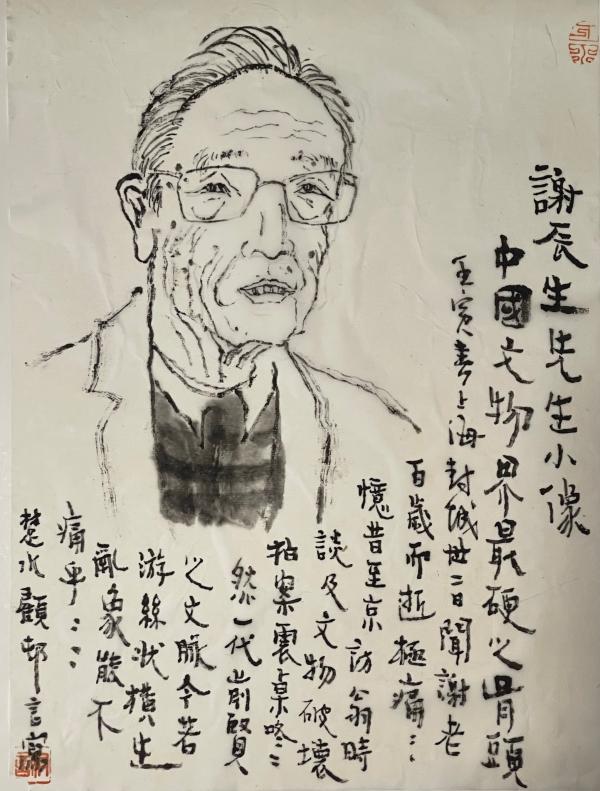 謝辰生先生小像
中國文物界最硬之骨頭
壬寅春上海封城卅二日聞謝老
百歲而逝極痛：
憶昔至京訪翁時
談及文物破壞
拍案震桌咚：
然一代前賢
之文脈今若
游絲狀橫生
亂象能不
痛乎：：
楚水顧邨言寫